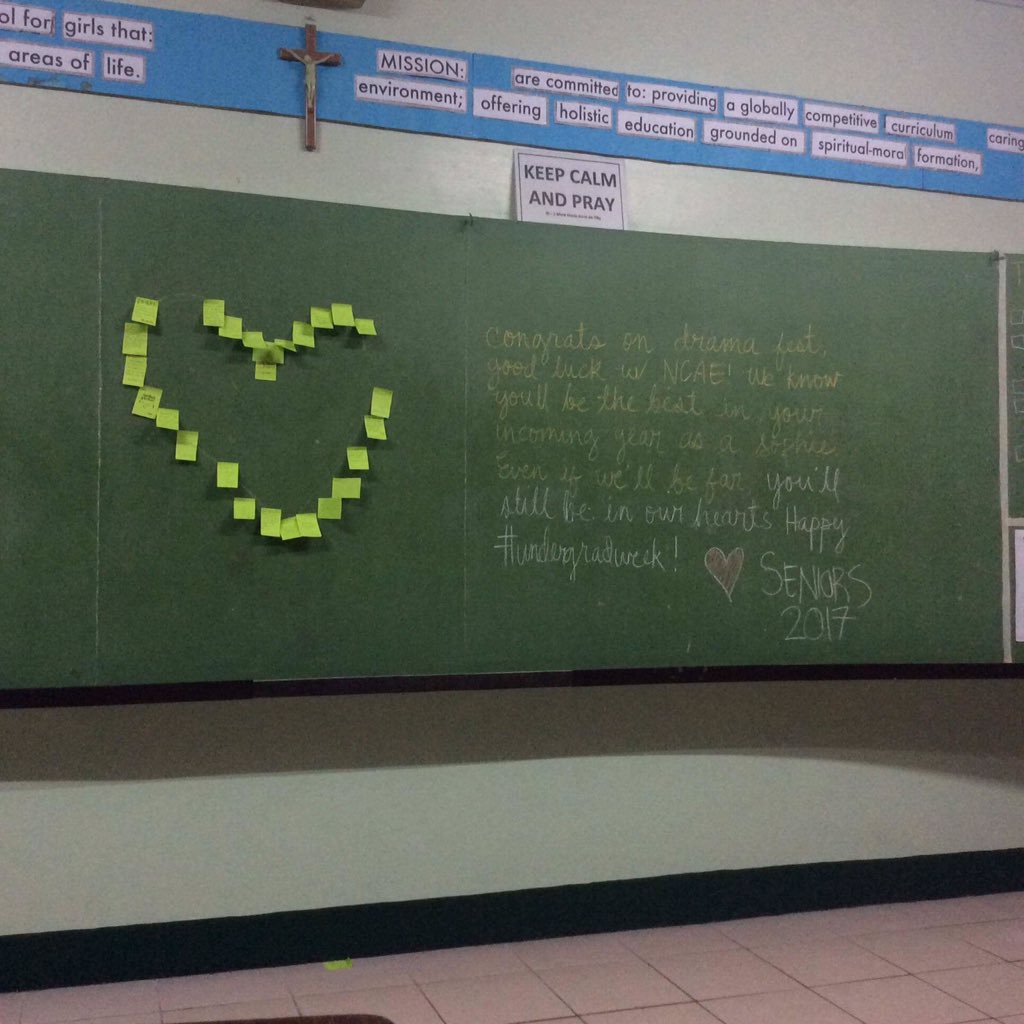 ol for girls that:
areas of life.
MISSION: are committed to: providing a globally competitive curriculum caring
environment; offering holistic education grounded on spiritual-moral formation,
KEEP CALM
AND PRAY
Congrats on drama fest,
good luck w/ NCAE! We know
you'll be the best in your
incoming year as a sophie.
Even if we'll be far you'll
still be in our hearts Happy
#undergradweek! ♥ SENIORS
2017